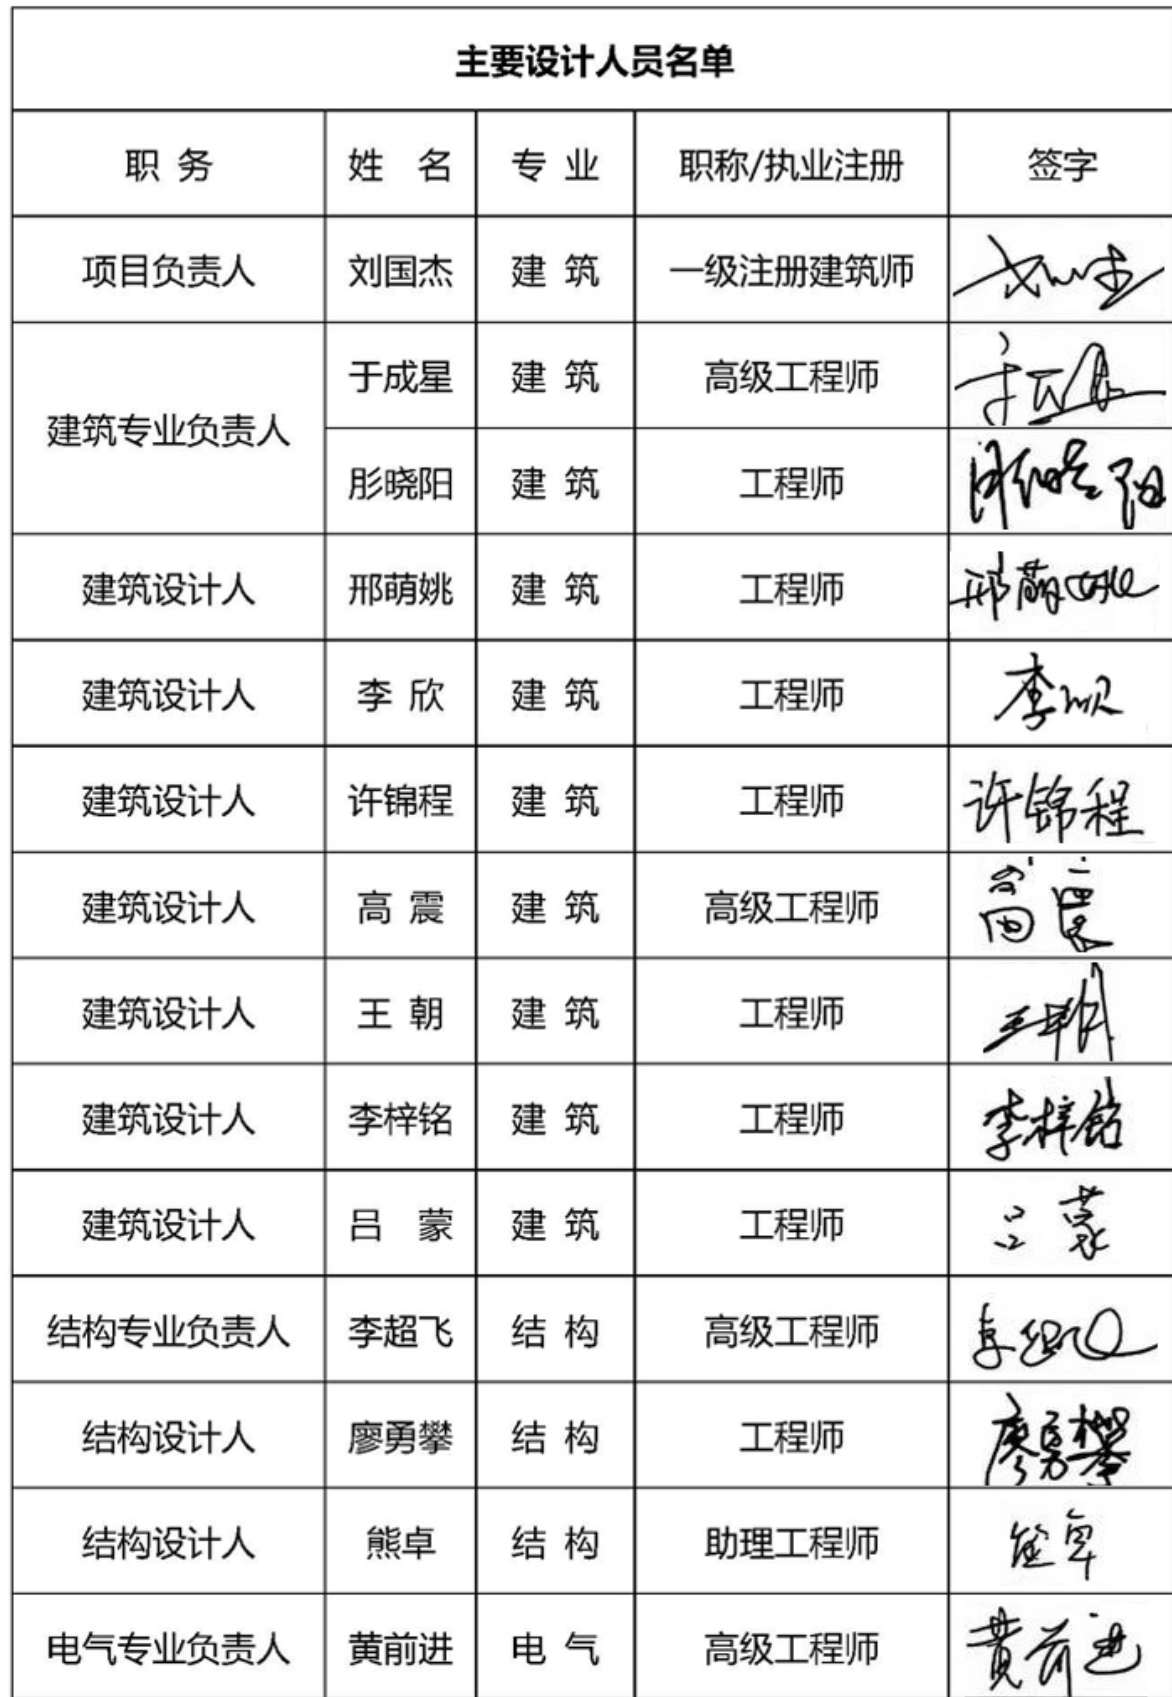 主要设计人员名单
职 务 姓 名 专 业 职称/执业注册 签字
项目负责人 刘国杰 建 筑 一级注册建筑师
建筑专业负责人
于成星 建 筑 高级工程师
肜晓阳 建 筑 工程师
建筑设计人 邢萌姚 建 筑 工程师 邢萌姚
建筑设计人 李 欣 建 筑 工程师 李欣
建筑设计人 许锦程 建 筑 工程师 许锦程
建筑设计人 高 震 建 筑 高级工程师 高震
建筑设计人 王 朝 建 筑 工程师 王朝
建筑设计人 李梓铭 建 筑 工程师 李梓铭
建筑设计人 吕 蒙 建 筑 工程师 吕蒙
结构专业负责人 李超飞 结 构 高级工程师
结构设计人 廖勇攀 结 构 工程师 廖勇攀
结构设计人 熊卓 结 构 助理工程师 熊卓
电气专业负责人 黄前进 电 气 高级工程师 黄前进